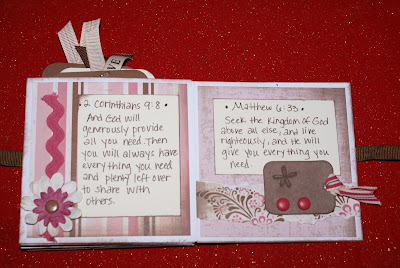 • 2 Corinthians 9:8 •
And God will
generously provide
all you need. Then
you will always have
everything you need
and plenty left over
to share with
others.
• Matthew 6:33 •
Seek the Kingdom of God
above all else, and live
righteously, and He will
give you everything you
need.